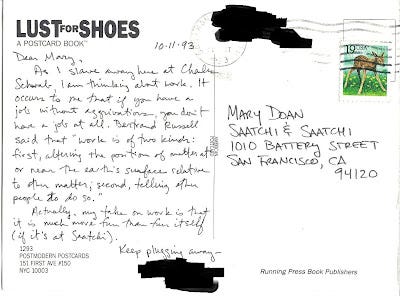 LUST FOR SHOES
A POSTCARD BOOK™
10-11-93
Dear Mary,
As I slave away here at Charles
Schwab, I am thinking about work. It
occurs to me that if you have a
job without aggravations, you don't
have a job at all. Bertrand Russell
said that "work is of two kinds:
first, altering the position of matter at
or near the earth's surface relative
to other matter; second, telling other
people to do so."
Actually, my take on work is that
it is much more fun than fun itself
(if it's at Saatchi).
Keep plugging away—
1293
POSTMODERN POSTCARDS
151 FIRST AVE #150
NYC 10003
19 USA
MARY DOAN
SAATCHI & SAATCHI
1010 BATTERY STREET
SAN FRANCISCO, CA
94120
Running Press Book Publishers